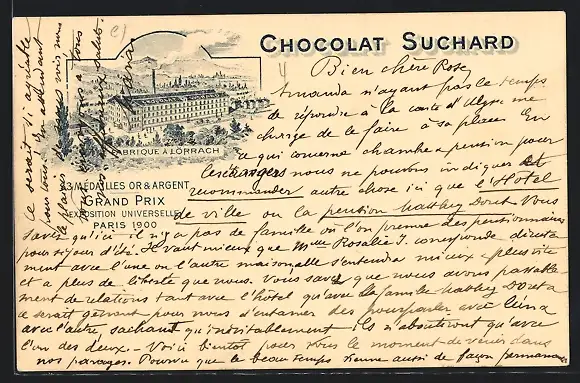 CHOCOLAT SUCHARD
FABRIQUE À LÖRRACH
43 MÉDAILLES OR & ARGENT
GRAND PRIX
EXPOSITION UNIVERSELLE
PARIS 1900
Bien chère Rose
Amanda n'ayant pas le temps
de répondre à la carte d'Ulysse me
charge de le faire à sa place. En
ce qui concerne chambre & pension pour
les étrangers nous ne pouvons indiquer et
recommander autre chose ici que l'Hotel
de ville ou la pension Matthey Doret. Vous
savez qu'ici il n'y a pas de famille où l'on prenne des pensionnaires
pour séjour d'été. Il vaut mieux que Mlle Rosalie J. corresponde directe
ment avec l'une ou l'autre maison, elle s'entendra mieux & plus vite
et a plus de liberté que nous. Vous savez que nous avons passable-
ment de relations tant avec l'hôtel qu'avec la famille Matthey Doret &
ce serait gênant pour nous d'entamer des pourparlers avec l'un &
avec l'autre sachant qu'inévitablement ils n'aboutiront qu'avec
l'un des deux. Voici bientôt pour vous le moment de venir dans
nos parages. Pourvu que le beau temps vienne aussi de façon permanente
ce serait si agréable
pour vous. En attendant
le plaisir de vous voir nous
vous à tous
saluts.